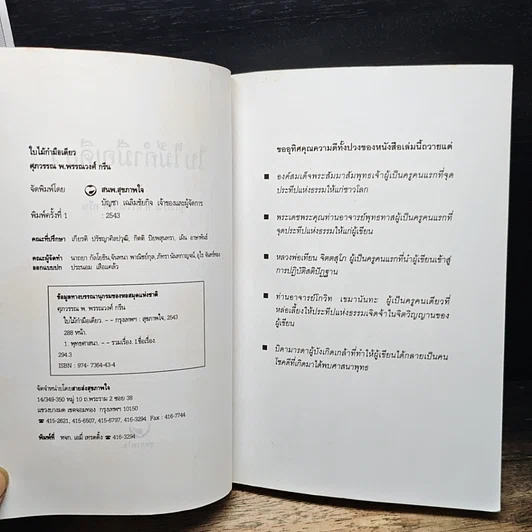 ใบไม้กำมือเดียว
ศุภวรรณ พ.พรรณวงศ์ กรีน
จัดพิมพ์โดย สนพ.สุขภาพใจ
บัญชา เฉลิมชัยกิจ เจ้าของและผู้จัดการ
พิมพ์ครั้งที่ 1 : 2543
คณะที่ปรึกษา เกียรติ ปรัชญาศิลปวุฒิ, กิตติ ปิยพสุนทรา, เด่น อาษาพันธ์
คณะผู้จัดทำ นาถยา กัลโยธิน, จันทนา พาณิชย์กุล, ภัทรา นันทกาญจน์, อุไร จันทร์ของ
ออกแบบปก ประนอม เสือแคล้ว
ข้อมูลทางบรรณานุกรมของหอสมุดแห่งชาติ
ศุภวรรณ พ. พรรณวงศ์ กรีน
ใบไม้กำมือเดียว. - - กรุงเทพฯ : สุขภาพใจ, 2543
288 หน้า.
1. พุทธศาสนา. - - รวมเรื่อง. I.ชื่อเรื่อง.
294.3
ISBN : 974- 7364-43-4
จัดจำหน่ายโดยสายส่งสุขภาพใจ
14/349-350 หมู่ 10 ถ.พระราม 2 ซอย 38
แขวงบางมด เขตจอมทอง กรุงเทพฯ 10150
☎ 415-2621, 415-6507, 415-6797, 416-3294 Fax : 416-7744
พิมพ์ที่ หจก. เอมี่ เทรดดิ้ง ☎ 416-3294
ขออุทิศคุณความดีทั้งปวงของหนังสือเล่มนี้ถวายแด่
■ องค์สมเด็จพระสัมมาสัมพุทธเจ้าผู้เป็นครูคนแรกที่จุด
ประทีปแห่งธรรมให้แก่ชาวโลก
■ พระเดชพระคุณท่านอาจารย์พุทธทาสผู้เป็นครูคนแรกที่
จุดประทีปแห่งธรรมให้แก่ผู้เขียน
■ หลวงพ่อเทียน จิตตสุโภ ผู้เป็นครูคนแรกที่นำผู้เขียนเข้าสู่
การปฏิบัติสติปัฏฐาน
■ ท่านอาจารย์โกวิท เขมานันทะ ผู้เป็นครูคนเดียวที่
หล่อเลี้ยงให้ประทีปแห่งธรรมเจิดจ้าในจิตวิญญาณของ
ผู้เขียน
■ บิดามารดาผู้บังเกิดเกล้าที่ทำให้ผู้เขียนได้กลายเป็นคน
โชคดีที่เกิดมาได้พบศาสนาพุทธ